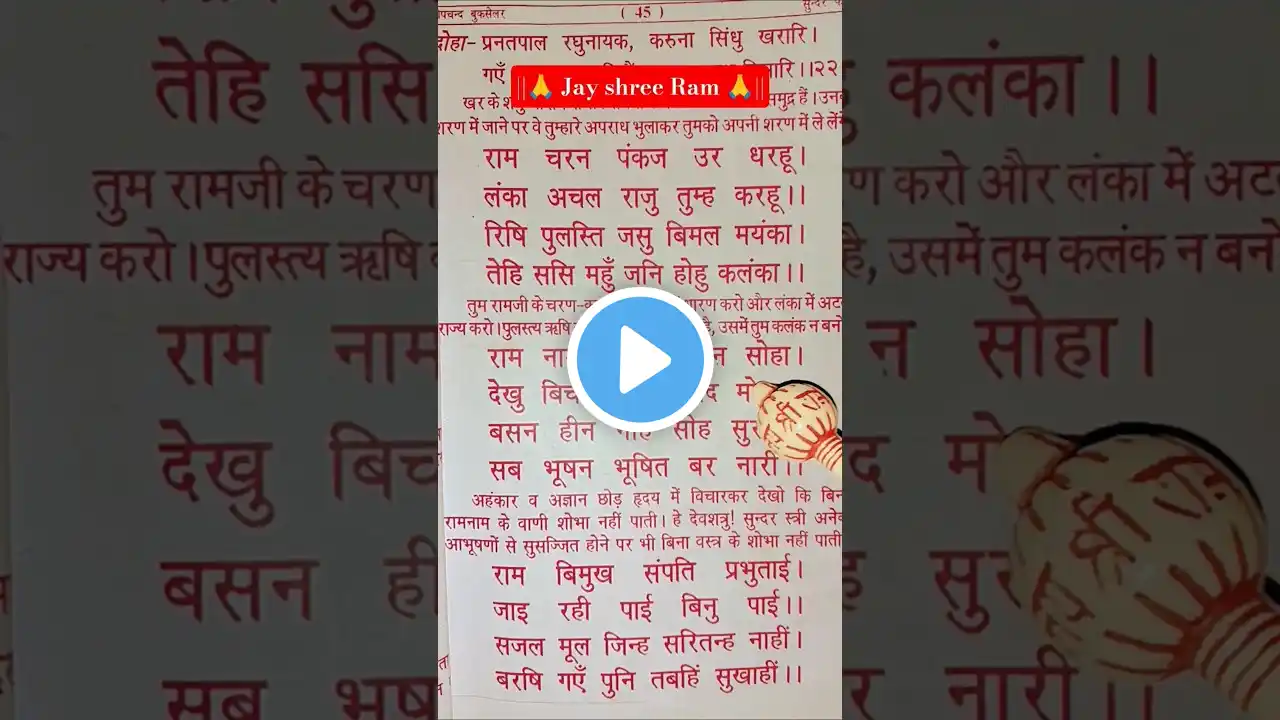 पचन्द बुकसेलर ( 45 ) सुन्दर
दोहा- प्रनतपाल रघुनायक, करुना सिंधु खरारि।
गएँ ।।२२
|| 🙏 Jay shree Ram 🙏 ||
खर के समुद्र हैं। उनव
शरण में जाने पर वे तुम्हारे अपराध भुलाकर तुमको अपनी शरण में ले लेंग
राम चरन पंकज उर धरहू।
लंका अचल राजु तुम्ह करहू।।
रिषि पुलस्ति जसु बिमल मयंका।
तेहि ससि महुँ जनि होहु कलंका।।
तुम रामजी के चरण- करो और लंका में अट
राज्य करो। पुलस्त्य ऋषि है, उसमें तुम कलंक न बनो
राम ना न सोहा।
देखु बिच द मो
बसन हीन सोह सु
सब भूषन भूषित बर नारी।।
अहंकार व अज्ञान छोड़ हृदय में विचारकर देखो कि बिन
रामनाम के वाणी शोभा नहीं पाती। हे देवशत्रु! सुन्दर स्त्री अनेव
आभूषणों से सुसज्जित होने पर भी बिना वस्त्र के शोभा नहीं पाती
राम बिमुख संपति प्रभुताई।
जाइ रही पाई बिनु पाई।।
सजल मूल जिन्ह सरितन्ह नाहीं।
बरषि गएँ पुनि तबहिं सुखाहीं।।